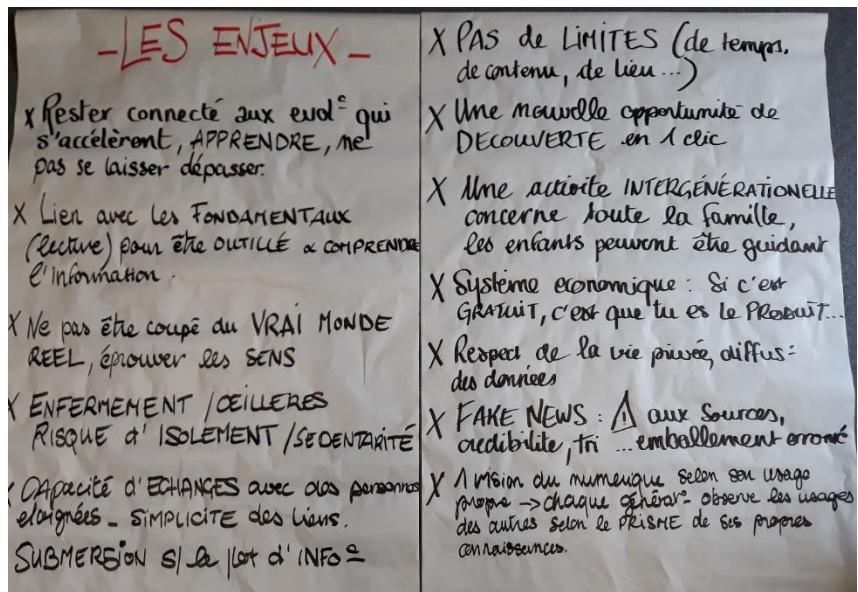 - LES ENJEUX -
X Rester connecté aux evol° qui
s'accélèrent, APPRENDRE, ne
pas se laisser dépasser.
X Lien avec les FONDAMENTAUX
(lecture) pour être OUTILLÉ & COMPRENDRE
l'information.
X Ne pas être coupé du VRAI MONDE
REEL, éprouver les SENS
X ENFERMEMENT / OEILLERES
RISQUE d'ISOLEMENT / SEDENTARITÉ
X CApacité d'ECHANGES avec des personnes
eloignées - SIMPLICITE des liens.
SUBMERSION s/ le flot d'INFO°
X PAS de LIMITES (de temps,
de contenu, de lieu ...)
X Une nouvelle opportunité de
DECOUVERTE en 1 clic
X Une activite INTERGÉNÉRATIONELLE
concerne toute la famille,
les enfants peuvent être guidant
X Système economique : Si c'est
GRATUIT, c'est que tu es le PRODUIT...
X Respect de la vie privée, diffus°
des données
X FAKE NEWS : ⚠ aux sources,
credibilite, tri ... emballement erroné
X 1 vision du numerique selon son usage
propre → chaque générat° observe les usages
des autres selon le PRISME de ses propres
connaissances.